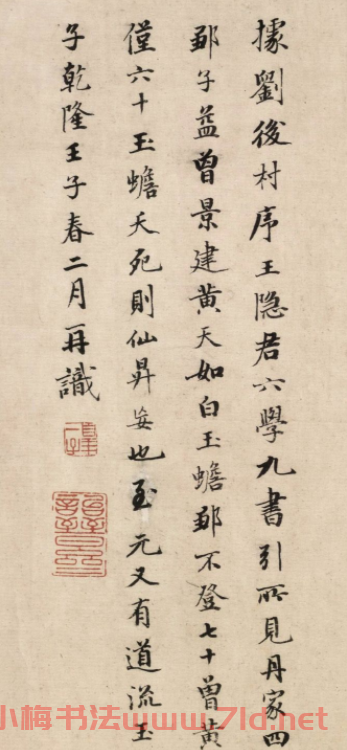 據劉後村序王隐君六學九書引所見丹家四
鄒子益曾景建黄天如白玉蟾鄒不登七十曾黄
僅六十玉蟾夭死則仙昇妄也至元又有道流玉
子乾隆壬子春二月再識
小梅书法www.7ld.net